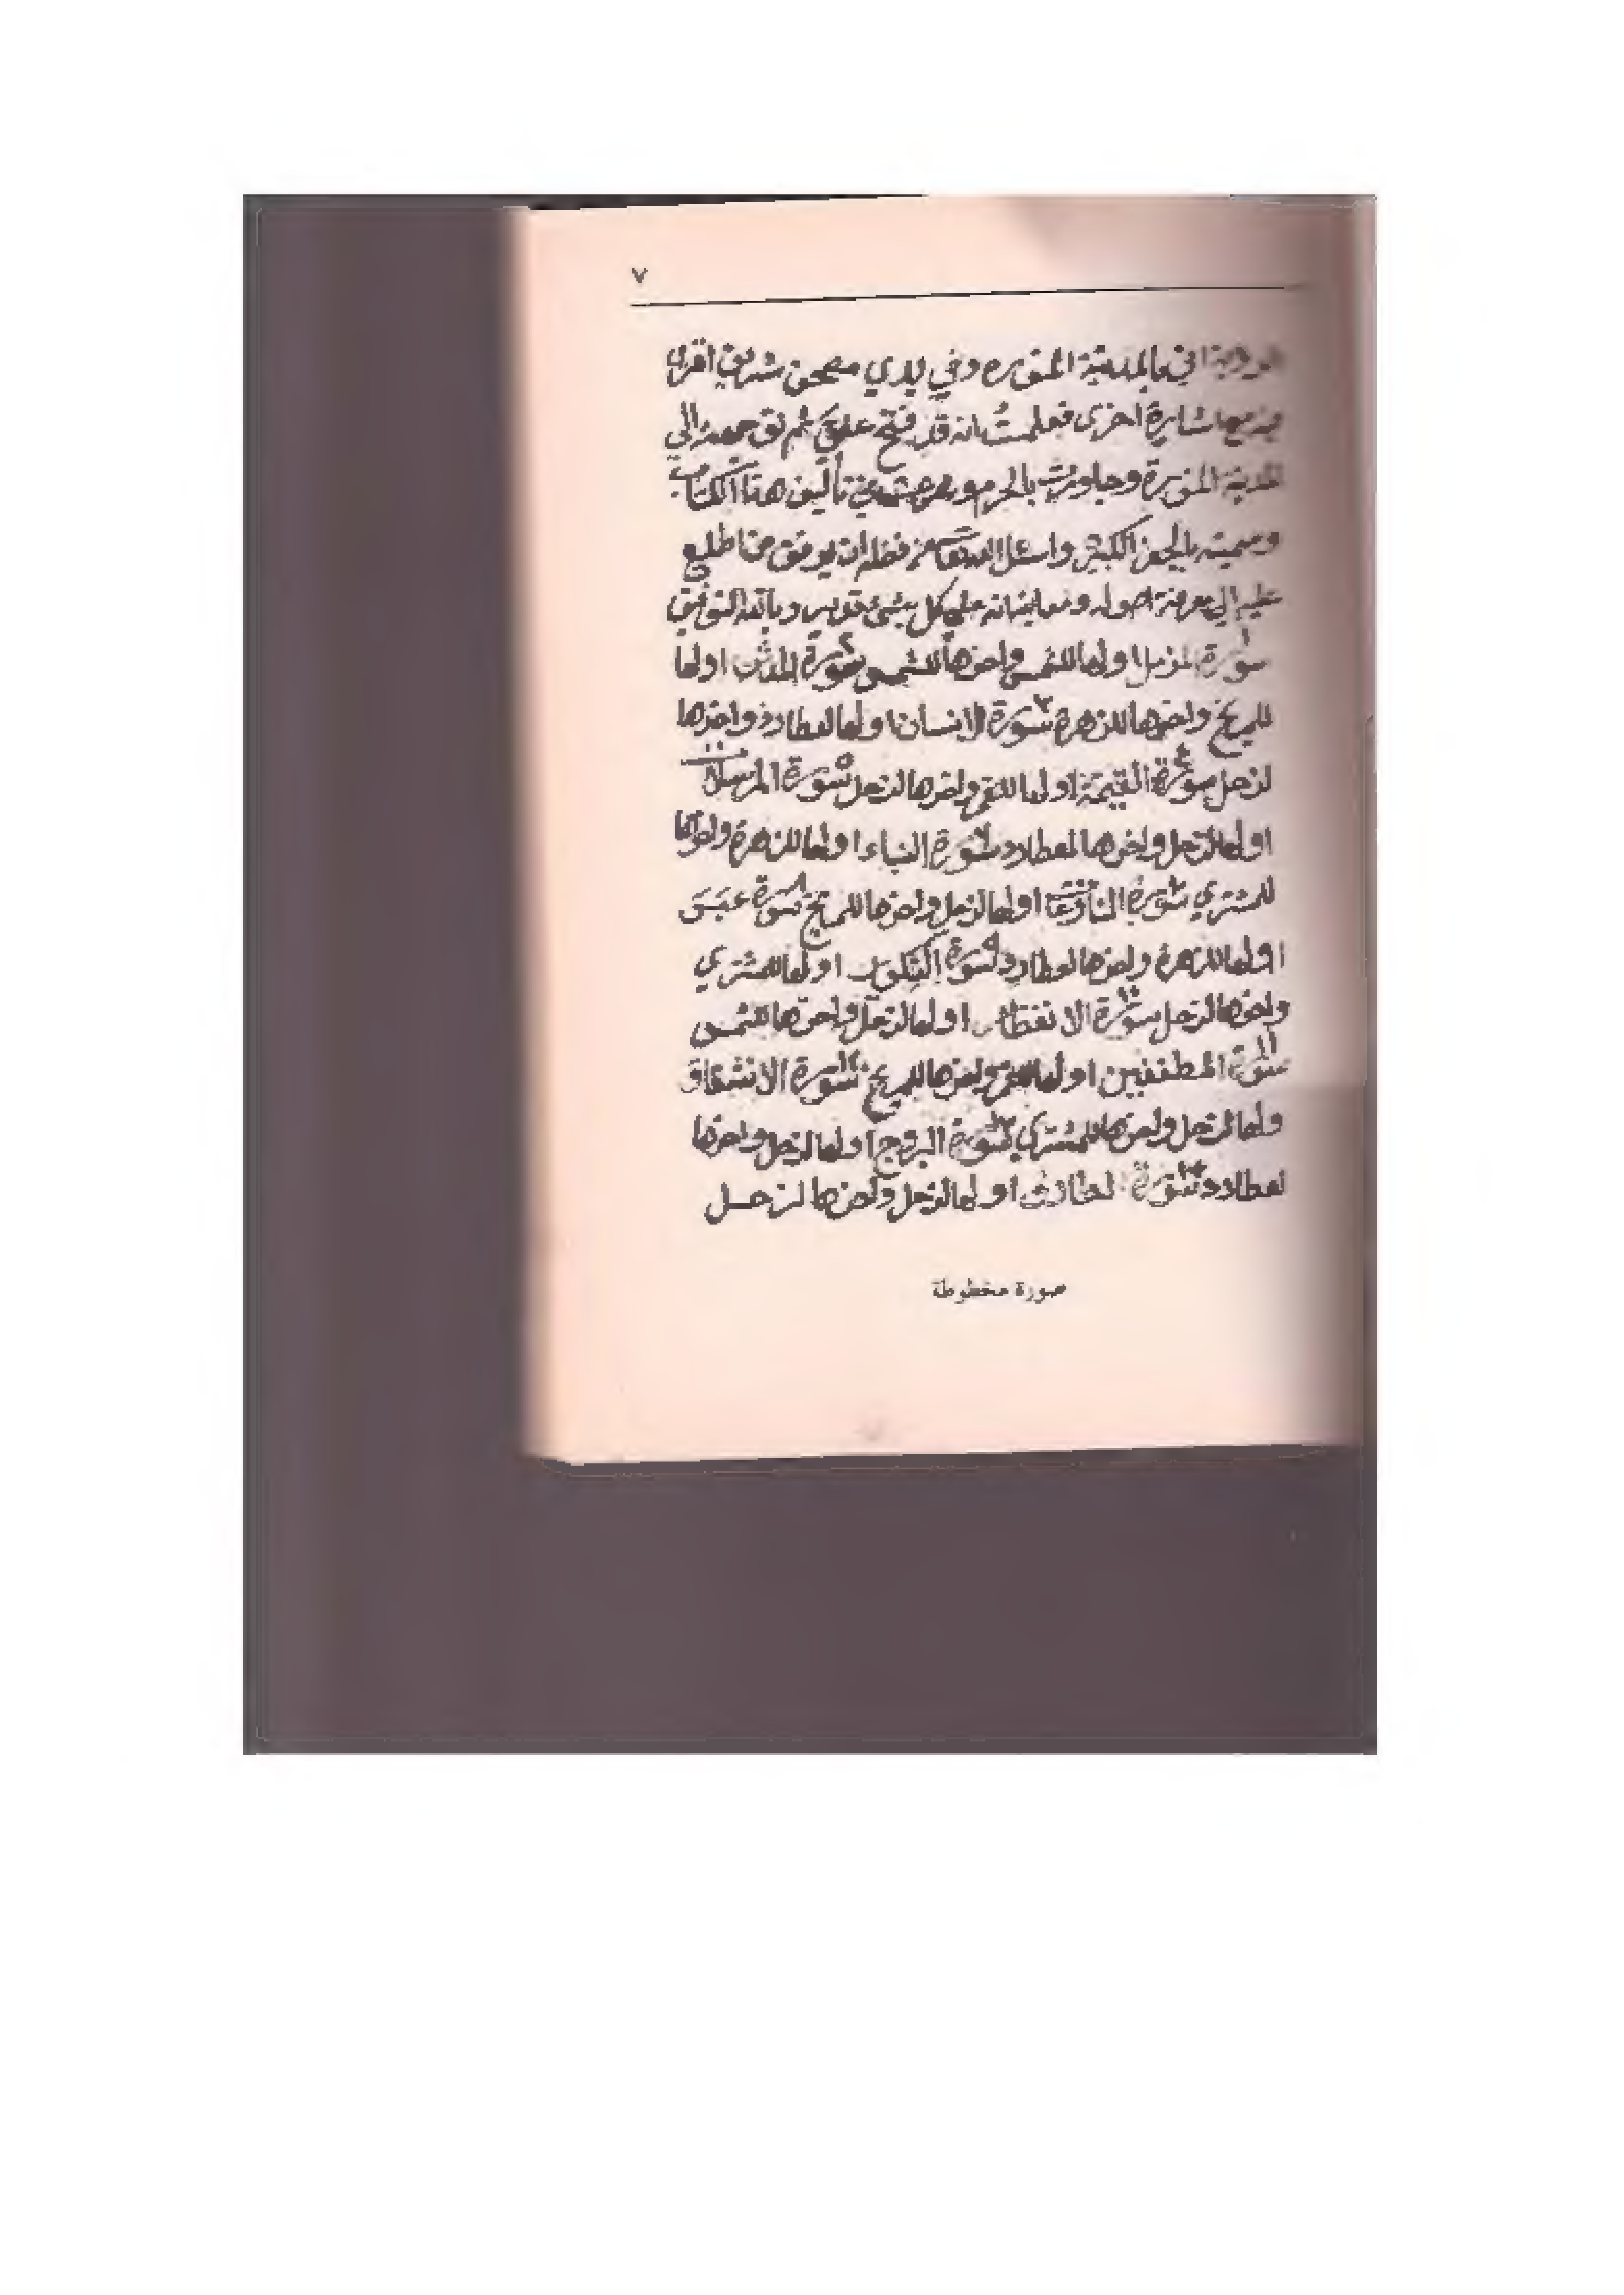 ٧
اني بالمدينة المنوره وفي يدي مصحف شريف اقرى
اشارة اخرى فعلمت انه قد فتح علي ثم توجهت الي
المدينة المنورة وجاورت بالحرم في تأليف هذا الكتاب
وسميته بالجفر الكبير واسئل الله من فضله ان يوفق من اطلع
عليه الي معرفة اصوله انه علي كل شئ قدير وبالله التوفيق
سورة المزمل اولها للشمس واخرها للشمس سورة المدثر اولها
للمريخ واخرها للزهرة سورة الانسان اولها لعطارد واخرها
لزحل سورة القيمة اولها للقمر واخرها لزحل سورة المرسلات
اولها لزحل واخرها لعطارد سورة النباء اولها للزهرة واخرها
للمشتري سورة النازعات اولها لزحل واخرها للمريخ سورة عبس
اولها للزهرة واخرها لعطارد سورة التكوير اولها للمشتري
واخرها لزحل سورة الانفطار اولها لزحل واخرها للشمس
سورة المطففين اولها للقمر واخرها للمريخ سورة الانشقاق
ولها لزحل واخرها للمشتري سورة البروج اولها لزحل واخرها
لعطارد سورة الطارق اولها لزحل واخرها لزحل
صورة مخطوطة